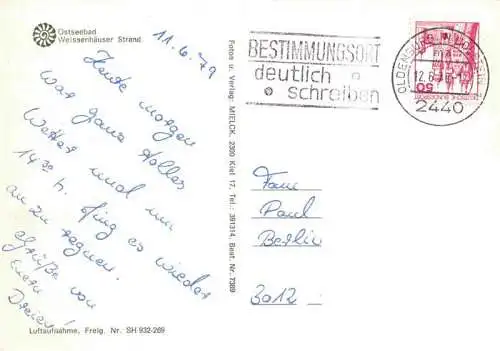 Ostseebad
Weissenhäuser Strand
11.6.79
Heute morgen
war ganz tolles
Wetter und um
14 30 h. fing es wieder
an zu regnen.
Grüße von
Euern
Dreien!
Luftaufnahme, Freig. Nr. SH 932-269
Fotos u. Verlag: MIELCK, 2300 Kiel 17, Tel.: 391314, Best. Nr. 7389
BESTIMMUNGSORT
deutlich
schreiben
OLDENBURG IN HOLSTEIN
12.6.79
2440
50
Fam
Paul
Berlin
3012